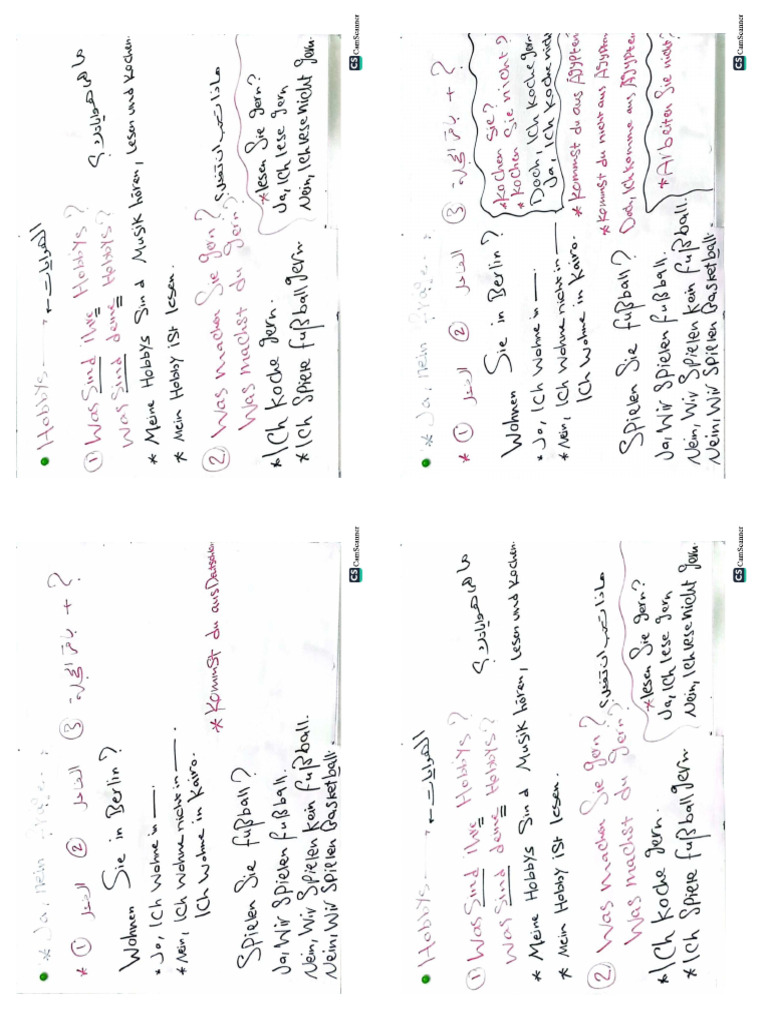 Hobbys → الهوايات
① Was sind ihre Hobbys? ما هي هواياتك؟
Was sind deine Hobbys?
* Meine Hobbys sind Musik hören, lesen und kochen.
* Mein Hobby ist lesen.
② Was machen Sie gern? ماذا تحب ان تفعل؟
Was machst du gern?
* Ich koche gern.
* Ich spiele fußball gern
* lesen Sie gern?
Ja, Ich lese gern
Nein, Ich lese nicht gern.
CS CamScanner
* Ja, nein fragen
* ① الفعل ② الفاعل ③ باقي الجملة + ?
Wohnen Sie in Berlin?
* Ja, Ich wohne in —.
* Nein, Ich wohne nicht in —.
Ich wohne in Kairo.
Spielen Sie fußball?
Ja, Wir spielen fußball.
Nein, Wir spielen kein fußball.
Nein, Wir spielen Basketball.
* Kochen Sie?
* Kochen Sie nicht?
Doch, Ich koche gern
Ja, Ich koche nich
* Kommst du aus Ägypten
* Kommst du nicht aus Ägypten
Doch, Ich komme aus Ägypten
* Arbeiten Sie nicht?
CS CamScanner
* Ja, nein fragen
* ① الفعل ② الفاعل ③ باقي الجملة + ?
Wohnen Sie in Berlin?
* Ja, Ich wohne in —.
* Nein, Ich wohne nicht in —.
Ich wohne in Kairo.
* Kommst du aus Deutschlan
Spielen Sie fußball?
Ja, Wir spielen fußball.
Nein, Wir spielen kein fußball.
Nein, Wir spielen Basketball.
CS CamScanner
Hobbys → الهوايات
① Was sind ihre Hobbys? ما هي هواياتك؟
Was sind deine Hobbys?
* Meine Hobbys sind Musik hören, lesen und kochen.
* Mein Hobby ist lesen.
② Was machen Sie gern? ماذا تحب ان تفعل؟
Was machst du gern?
* Ich koche gern.
* Ich spiele fußball gern
* lesen Sie gern?
Ja, Ich lese gern
Nein, Ich lese nicht gern.
CS CamScanner